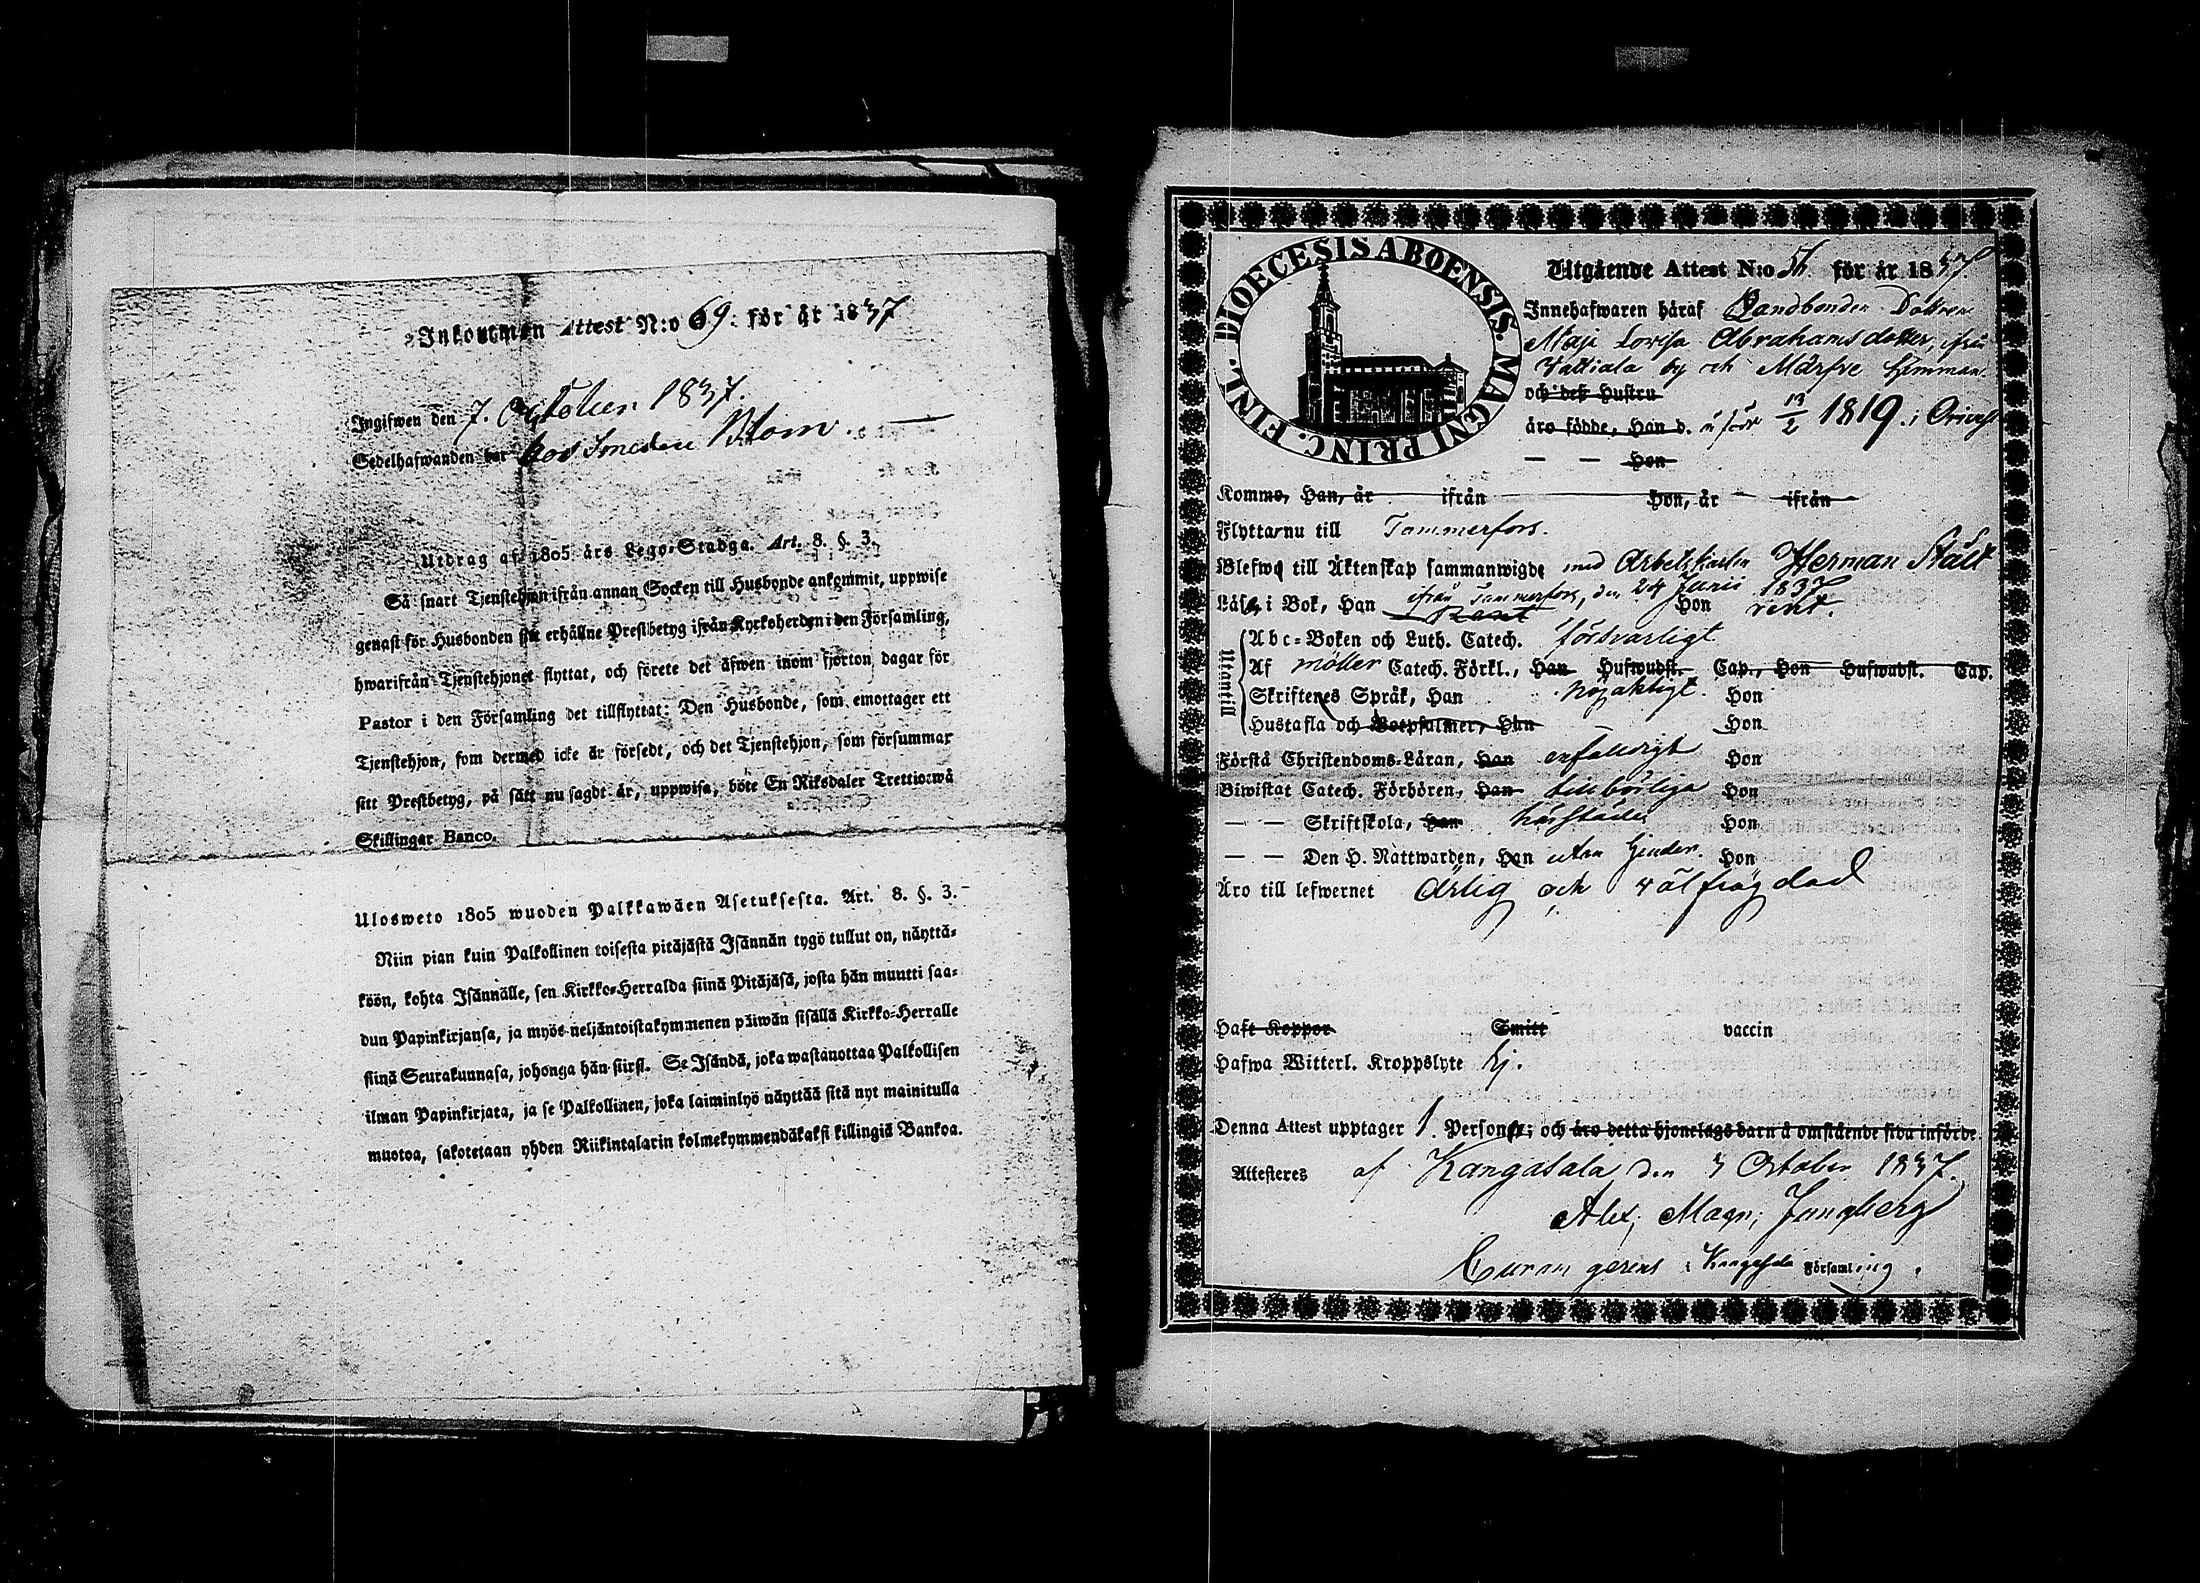 Inkommen Attest N:o 69. för år 1837
Ingifwen den 7. October 1837.
Sedelhafwanden bor hos Smeden Blom.
Utdrag af 1805 års Lego-Stadga. Art. 8. §. 3.
Så snart Tjenstehjon ifrån annan Socken till Husbonde ankommit, uppwise
genast för Husbonden sitt erhållne Prestbetyg ifrån Kyrkoherden i den Församling,
hwarifrån Tjenstehjonet flyttat, och förete det äfwen inom fjorton dagar för
Pastor i den Församling det tillflyttat: Den Husbonde, som emottager ett
Tjenstehjon, som dermed icke är försedt, och det Tjenstehjon, som försummar
sitt Prestbetyg, på sätt nu sagdt är, uppwisa, böte En Riksdaler Trettiotwå
Skillingar Banco.
Ulosweto 1805 wuoden Palkkawäen Asetuksesta. Art. 8. §. 3.
Niin pian kuin Palkollinen toisesta pitäjästä Isännän tygö tullut on, näyttä-
köön, kohta Isännälle, sen Kirkko-Herralda siinä Pitäjäsä, josta hän muutti saa-
dun Papinkirjansa, ja myös neljäntoistakymmenen päiwän sisällä Kirkko-Herralle
siinä Seurakunnasa, johonga hän siirsi. Se Isändä, joka wastanottaa Palkollisen
ilman Papinkirjata, ja se Palkollinen, joka laiminlyö näyttää sitä nyt mainitulla
muotoa, sakotetaan yhden Riikintalarin kolmekymmendäkaksi killingiä Bankoa.
DIOECESIS ABOENSIS. MAGNI PRINC. FINL.
Utgående Attest N:o för år 1837
Innehafwaren häraf Landbonde Dottren
Maja Lovisa Abrahamsdotter, ifrån
Vattiala by och Märfve hemman
och deß Hustru
äro födde, Han d. är född 13/2 1819. i
— — Hon
Komme, Han, år ifrån Hon, år ifrån
Flyttarnu till Tammerfors.
Blefwe till Äktenskap sammanwigde med Arbetskarlen Herman Ståhl
ifrån Tammerfors, den 24 Junii 1837
Läsa i Bok, Han Hon rent.
Utantill
Abc-Boken och Luth. Catech. försvarligt
Af möller Catech. Förkl., Han Hufwudst. Cap., Hon Hufwudst. Cap.
Skriftenes Språk, Han nöjaktigt. Hon
Hustafla och Botpsalmer, Han Hon
Förstå Christendoms-Läran, Han enfaldigt Hon
Biwistat Catech. Förhören, Han tillbörliga Hon
— — Skriftskola, Han härstädes Hon
— — Den H. Nattwarden, Han utan hinder. Hon
Äro till lefwernet ärlig och välfrägdad
Haft Koppor Smitt vaccin
Hafwa Witterl. Kroppslyte Ej.
Denna Attest upptager 1. Personer; och äro detta hjonelags barn å omstående sida införde.
Attesteres af Kangasala den 7 October 1837.
Alex; Magn; Jungberg
Curam gerens i Kangasala Församling.